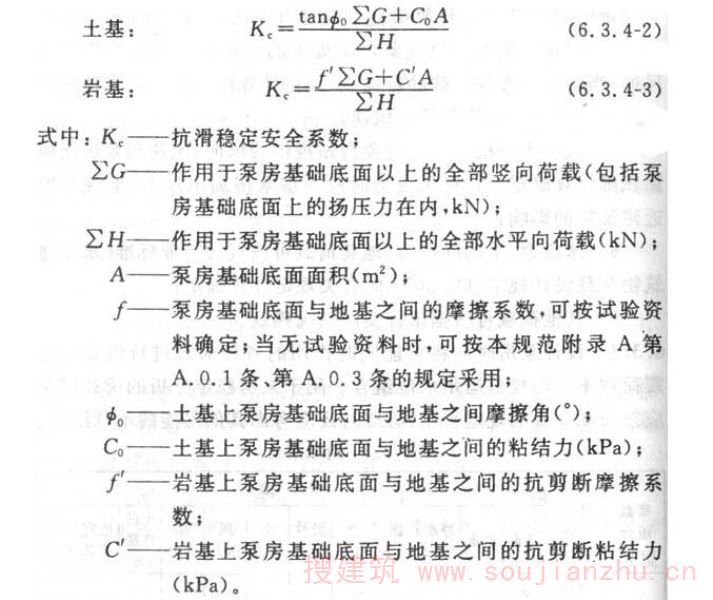 土基： K_c=\frac{\tan\phi_0\sum G+C_0A}{\sum H} (6.3.4-2)
岩基： K_c=\frac{f'\sum G+C'A}{\sum H} (6.3.4-3)
式中：K_c——抗滑稳定安全系数；
∑G——作用于泵房基础底面以上的全部竖向荷载(包括泵
房基础底面上的扬压力在内,kN)；
∑H——作用于泵房基础底面以上的全部水平向荷载(kN)；
A——泵房基础底面面积(m²)；
f——泵房基础底面与地基之间的摩擦系数,可按试验资
料确定；当无试验资料时,可按本规范附录 A,第
A.0.1条、第 A.0.3 条的规定采用；
ϕ₀——土基上泵房基础底面与地基之间摩擦角(°)；
C₀——土基上泵房基础底面与地基之间的粘结力(kPa)；
f′——岩基上泵房基础底面与地基之间的抗剪断摩擦系
数；
C′——岩基上泵房基础底面与地基之间的抗剪断粘结力
(kPa)。
搜建筑 www.soujianzhu.cn